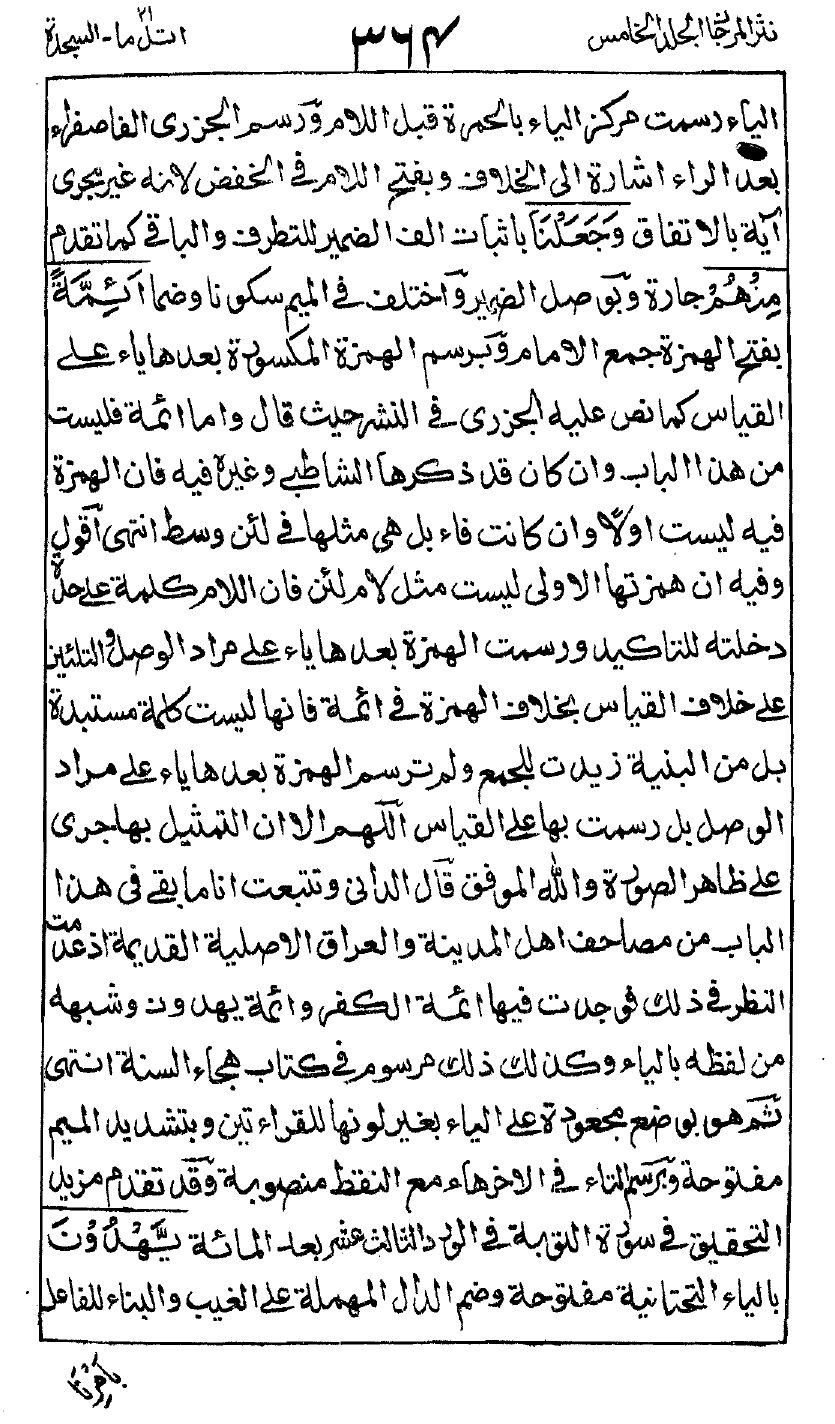 نثر المرجان المجلد الخامس
٣٦٤
اتل ما ٢١ - السجدة
الياء رسمت مركز الياء بالحمرة قبل اللام وَرسم الجزرى الفا صفراء
بعد الراء اشارة الى الخلاف وبفتح اللام فى الخفض لانه غير مجرى
آية بالاتفاق وَجَعَلْنَا باثبات الف الضمير للتطرف والباقى كما تقدم
مِنْهُمْ جارة وَبوصل الضمير وَاختلف فى الميم سكونا وضما اَئِمَّةً
بفتح الهمزة جمع الامام وَبرسم الهمزة المكسورة بعدها ياء على
القياس كما نص عليه الجزرى فى النشر حيث قال واما ائمة فليست
من هذا الباب وان كان قد ذكرها الشاطبى وغيره فيه فان الهمزة
فيه ليست اولا وان كانت فاء بل هى مثلها فى لئن وسط انتهى اَقول
وفيه ان همزتها الاولى ليست مثل لام لئن فان اللام كلمة على حدة
دخلته للتاكيد ورسمت الهمزة بعدها ياء على مراد الوصل والتلئين
على خلاف القياس بخلاف الهمزة فى ائمة فانها ليست كلمة مستبدة
بل من البنية زيدت للجمع ولم ترسم الهمزة بعدها ياء على مراد
الوصل بل رسمت بها على القياس اَللهم الا ان التمثيل بها جرى
على ظاهر الصورة والله الموفق قَال الدانى وتتبعت انا ما بقى فى هذا
الباب من مصاحف اهل المدينة والعراق الاصلية القديمة اذ عدمت
النظر فى ذلك فوجدت فيها ائمة الكفر وائمة يهدون وشبهه
من لفظه بالياء وكذلك ذلك مرسوم فى كتاب هجاء السنة انتهى
ثَم هو بوضع مجعودة على الياء بغير لونها للقراءتين وبتشديد الميم
مفتوحة وَبرسم التاء فى الاخر هاء مع النقط منصوبة وَقد تقدم مزيد
التحقيق فى سورة التوبة فى الورد الثالث عشر بعد المائة يَّهْدُوْنَ
بالياء التحتانية مفتوحة وضم الدال المهملة على الغيب والبناء للفاعل
بِاَمْرِنَا